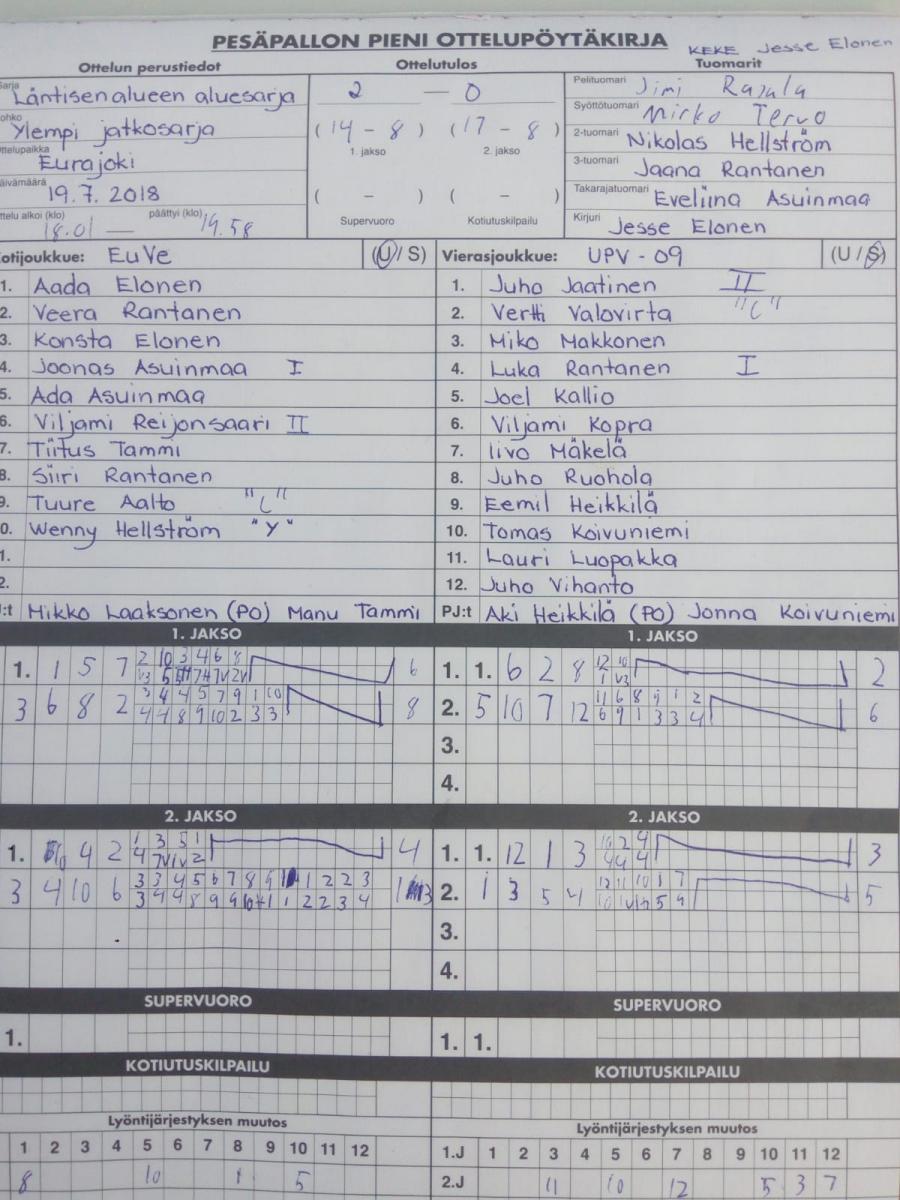 PESÄPALLON PIENI OTTELUPÖYTÄKIRJA KEKE Jesse Elonen
Ottelun perustiedot Ottelutulos Tuomarit
Läntisen alueen aluesarja
Ylempi jatkosarja
Eurajoki
19.7.2018
18.01 — päättyi (klo) 19.58
2 — 0
(14 - 8) (17 - 8)
1. jakso 2. jakso
( - ) ( - )
Supervuoro Kotiutuskilpailu
Pelituomari Jimi Rajala
Syöttötuomari Mirko Tervo
2-tuomari Nikolas Hellström
3-tuomari Jaana Rantanen
Takarajatuomari Eveliina Asuinmaa
Kirjuri Jesse Elonen
otijoukkue: EuVe (U/S)
1. Aada Elonen
2. Veera Rantanen
3. Konsta Elonen
4. Joonas Asuinmaa I
5. Ada Asuinmaa
6. Viljami Reijonsaari II
7. Tiitus Tammi
8. Siiri Rantanen
9. Tuure Aalto "L"
0. Wenny Hellström "Y"
1.
2.
:t Mikko Laaksonen (PO) Manu Tammi
Vierasjoukkue: UPV-09 (U/S)
1. Juho Jaatinen II
2. Vertti Valovirta "L"
3. Miko Makkonen
4. Luka Rantanen I
5. Joel Kallio
6. Viljami Kopra
7. Iivo Mäkelä
8. Juho Ruohola
9. Eemil Heikkilä
10. Tomas Koivuniemi
11. Lauri Luopakka
12. Juho Vihanto
PJ:t Aki Heikkilä (PO) Jonna Koivuniemi
1. JAKSO
1. 1 5 7 2 10 3 4 6 8 6
3 6 8 2 3 4 4 5 7 9 1 10 8
4 4 8 9 10 2 3 3
1. JAKSO
1. 1. 6 2 8 12 10 2
1 V3
2. 5 10 7 12 11 6 8 9 1 2 6
6 9 1 3 3 4
3.
4.
2. JAKSO
1. 4 2 1 3 5 1 4
3 4 10 6 3 3 4 5 6 7 8 9 1 2 2 3
2. JAKSO
1. 1. 12 1 3 10 2 4 3
4 4 4
2. 1 3 5 4 12 11 10 1 7 5
3.
4.
SUPERVUORO
1.
SUPERVUORO
1. 1.
KOTIUTUSKILPAILU
KOTIUTUSKILPAILU
Lyöntijärjestyksen muutos
1 2 3 4 5 6 7 8 9 10 11 12
8 10 1 5
Lyöntijärjestyksen muutos
1.J 1 2 3 4 5 6 7 8 9 10 11 12
2.J 11 10 12 5 3 7